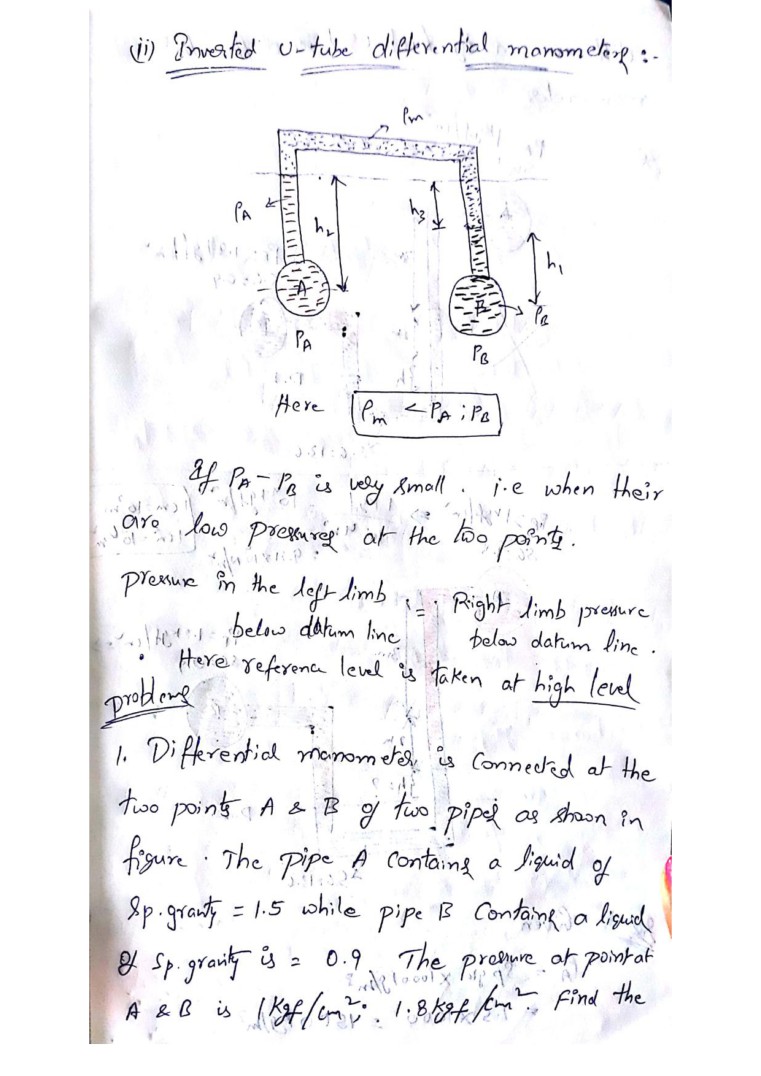 (ii) Inverted U-tube differential manometers :-
ρm
ρA
h2
h3
h1
A
B
ρB
PA
PB
Here ρm < ρA ; ρB
If PA - PB is very small . i.e when their
are low pressures at the two points.
pressure in the left limb = Right limb pressure
below datum line below datum line .
Here reference level is taken at high level
problems
1. Differential manometer is connected at the
two points A & B of two pipes as shown in
figure . The pipe A contains a liquid of
Sp.gravity = 1.5 while pipe B contains a liquid
of Sp. gravity is = 0.9 The pressure at point at
A & B is 1 kgf/cm² ; 1.8 kgf/cm². Find the